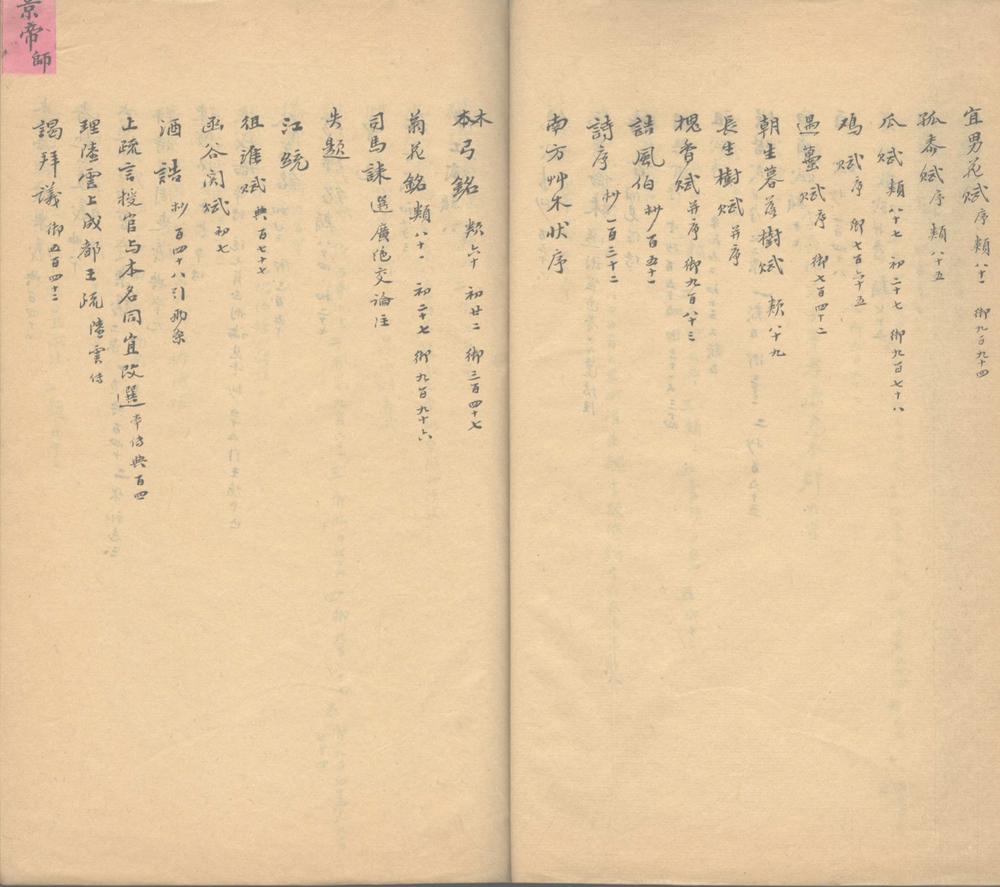 宜男花賦序 類八十一 御九百九十四
孤黍賦序 類八十五
瓜賦 類八十七 初二十七 御九百七十八
鸡賦序 御七百六十五
遇蠆賦序 御七百四十二
朝生暮落樹賦 類八十九
長生樹賦并序
槐香賦并序 御九百八十三
詰風伯 抄百五十一
詩序 抄一百三十二
南方艸木狀序
木弓銘 類六十 初廿二 御三百四十七
菊花銘 類八十一 初二十七 御九百九十六
司馬誄 選廣絶交論注
失題
江統
徂淮賦 典百七十七
函谷関賦 初七
酒誥 抄百四十八引兩条
上疏言授官与本名同宜改選 本傳典百四
理陸雲上成都王疏 陸雲傳
謁拜議 御五百四十二
景帝師